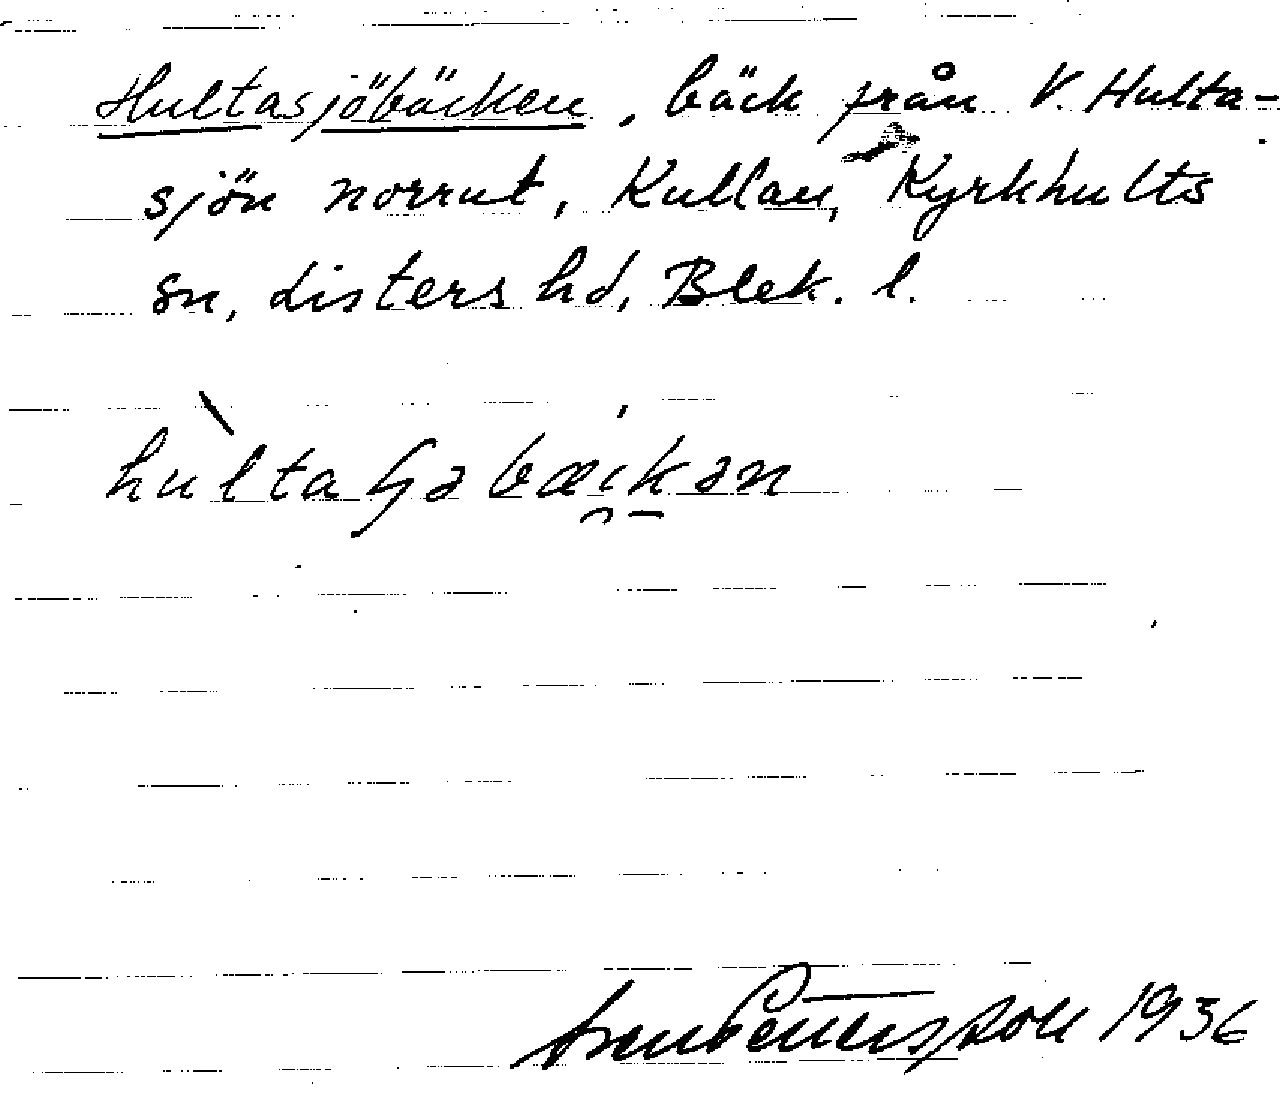 Hultasjöbäcken, bäck från V. Hulta-
sjön norrut, Kullan, Kyrkhults
sn, Listers hd, Blek. l.
hùltaʃɟəbæi̯k̲ən
Sven Pettersson 1936